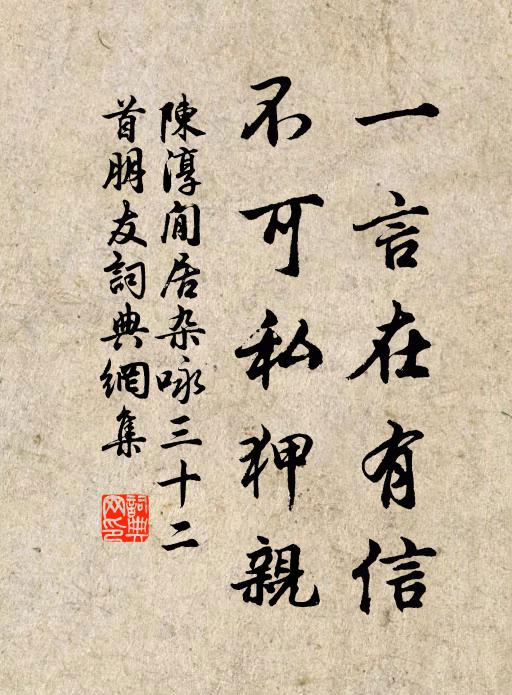 一言在有信
不可私狎親
陳淳閒居杂咏三十二
首朋友詞典網集
詞典
网印